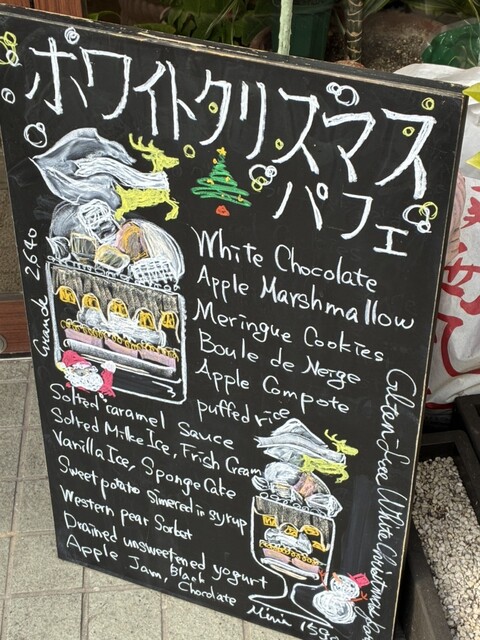 ホワイトクリスマス
パフェ
White Chocolate
Apple Marshmallow
Meringue Cookies
Boule de Neige
Apple Compote
puffed rice
Solted caramel sauce
Solted Milke Ice, Frish Cream
Vanilla Ice, Sponge Cake
Sweet potato simered in syrup
Western pear Sorbet
Drained unsweetened yogurt
Apple Jam, Black Chocolate
Grande 2640
Gluten-free White Christmas
Mini